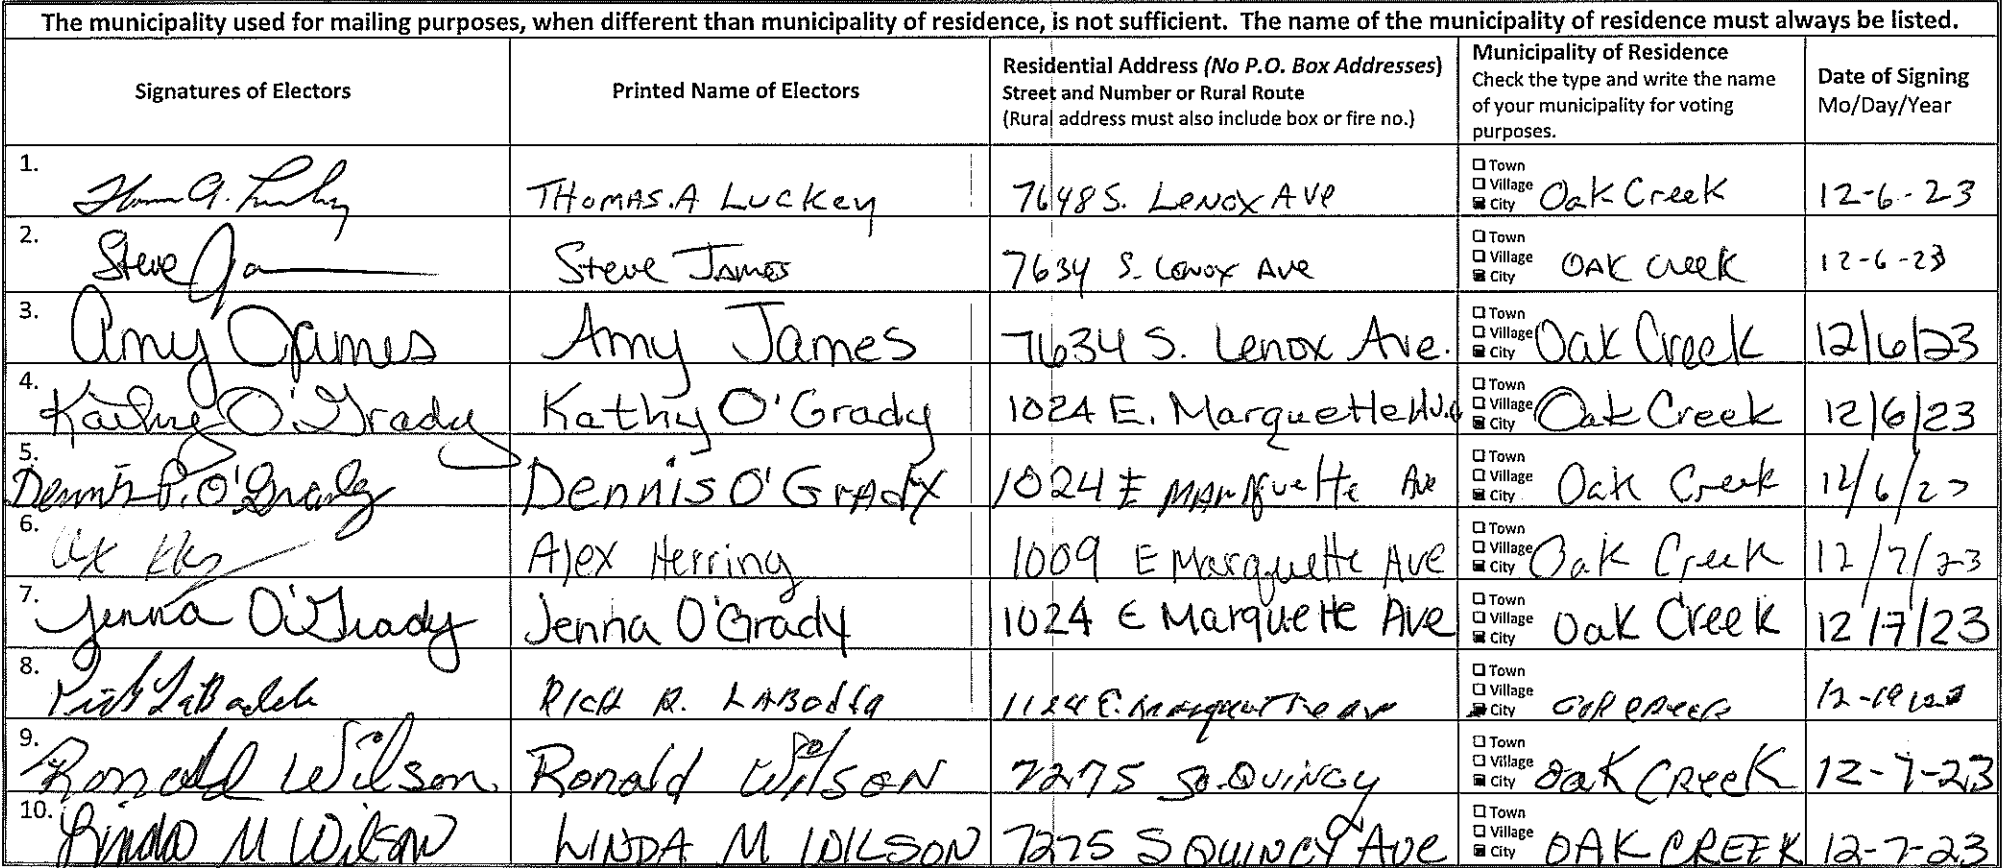 The municipality used for mailing purposes, when different than municipality of residence, is not sufficient. The name of the municipality of residence must always be listed.
Signatures of Electors
Printed Name of Electors
Residential Address (No P.O. Box Addresses)
Street and Number or Rural Route
(Rural address must also include box or fire no.)
Municipality of Residence
Check the type and write the name
of your municipality for voting
purposes.
Date of Signing
Mo/Day/Year
1. THOMAS.A LUCKEY 7648 S. LENOX AVE Town Village City Oak Creek 12-6-23
2. Steve James Steve JAMES 7634 S. Lenox AVE Town Village City OAK Creek 12-6-23
3. Amy James Amy James 7634 S. Lenox Ave. Town Village City Oak Creek 12/6/23
4. Kathy O'Grady Kathy O'Grady 1024 E. Marquette Ave Town Village City Oak Creek 12/6/23
5. Dennis P. O'Grady Dennis O'GrAdy 1024 E MArquette Ave Town Village City Oak Creek 12/6/23
6. Alex Herring 1009 E Marquette Ave Town Village City Oak Creek 12/7/23
7. Jenna O'Grady Jenna O'Grady 1024 E Marquette Ave Town Village City Oak Creek 12/7/23
8. RICH R. Town Village City
9. Ronald Wilson Ronald WilsoN 7275 So. Quincy Town Village City Oak CReeK 12-7-23
10. Linda M Wilson LINDA M WILSON 7275 S QUINCY Ave Town Village City OAK CREEK 12-7-23